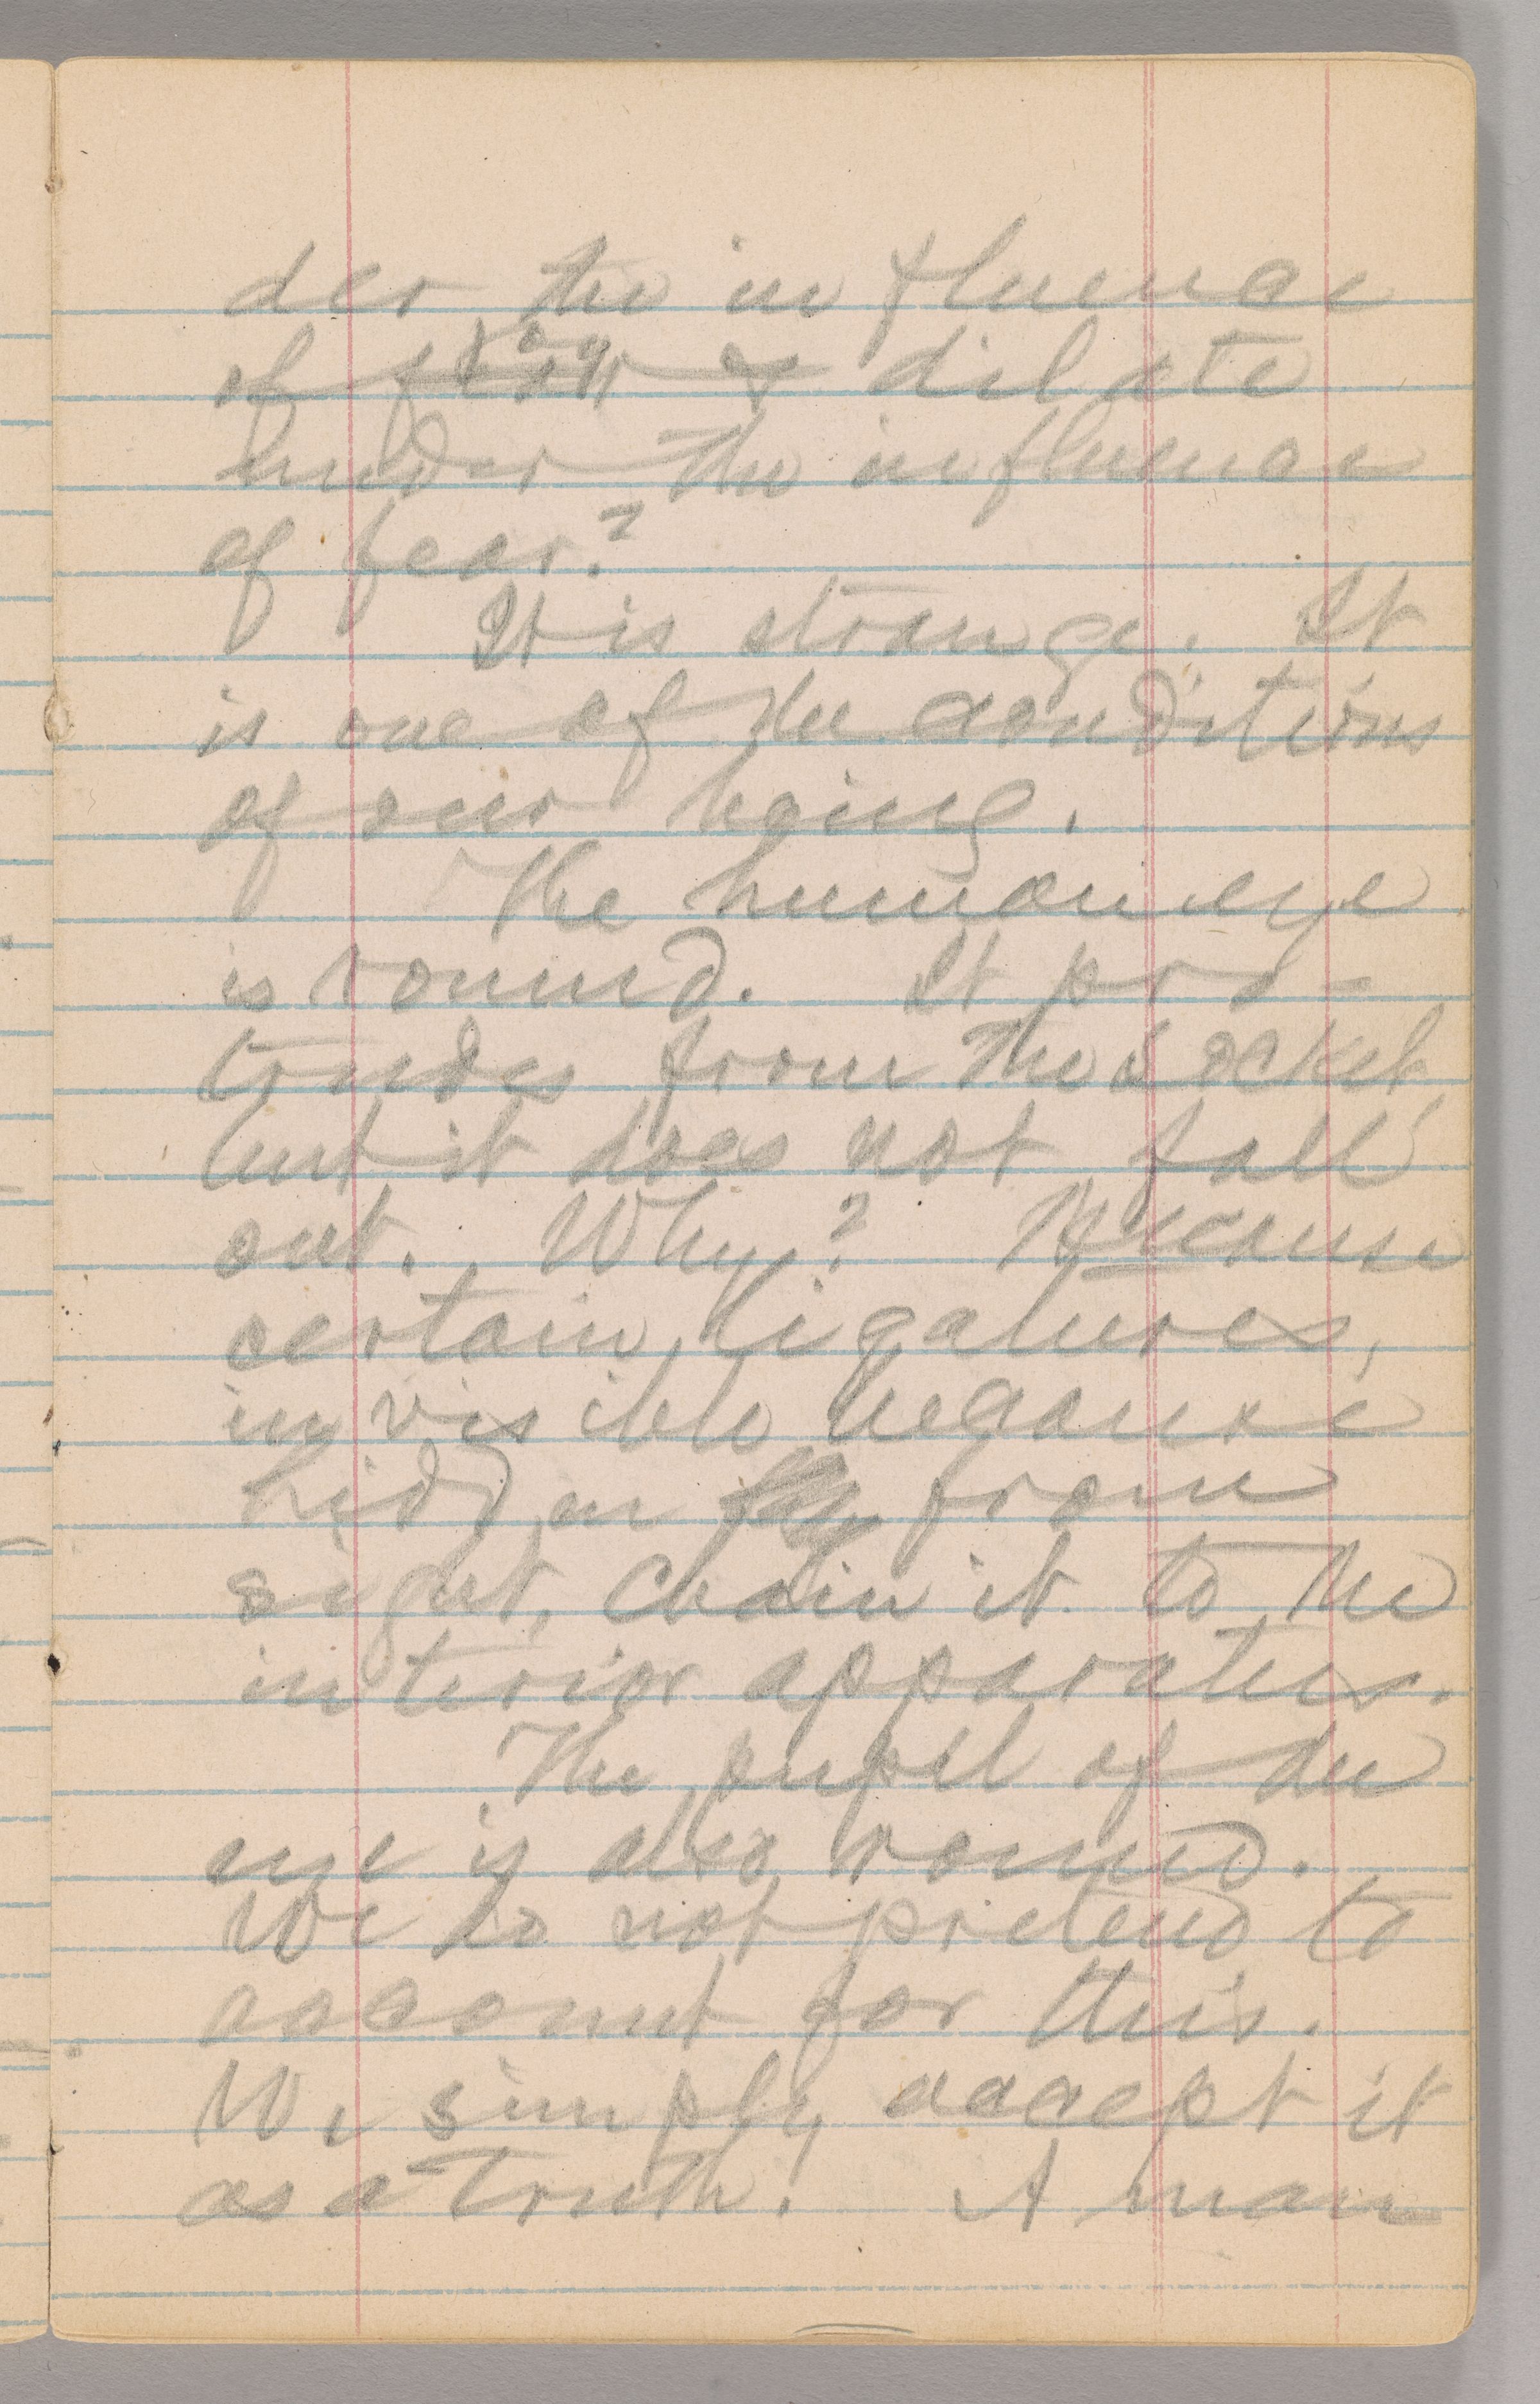 der the influence
of joy & dilate
under the influence
of fear?
It is strange. It
is one of the conditions
of our being.
The human eye
is round. It pro-
trudes from the socket,
but it does not fall
out. Why? Because
certain ligatures,
invisible because
hidden from
sight, chain it to the
interior apparatus.
The pupil of the
eye is also round.
We do not pretend to
account for this.
We simply accept it
as a truth. A man